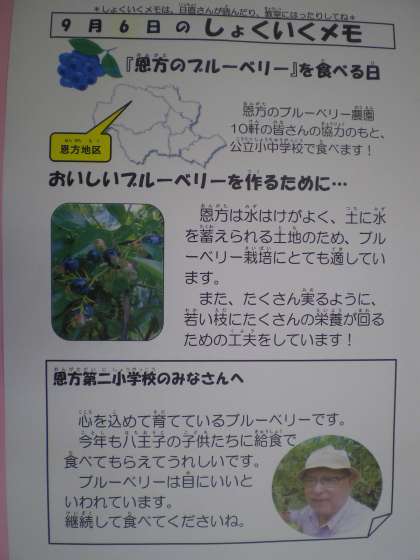 ＊しょくいくメモは、日直さんが読んだり、教室にはったりしてね＊
9月6日のしょくいくメモ
『恩方のブルーベリー』を食べる日
恩方地区
恩方のブルーベリー農園
10軒の皆さんの協力のもと、
公立小中学校で食べます！
おいしいブルーベリーを作るために…
恩方は水はけがよく、土に水
を蓄えられる土地のため、ブルー
ベリー栽培にとても適してい
ます。
また、たくさん実るように、
若い枝にたくさんの栄養が回る
ための工夫をしています！
恩方第二小学校のみなさんへ
心を込めて育てているブルーベリーです。
今年も八王子の子供たちに給食で
食べてもらえてうれしいです。
ブルーベリーは目にいいと
いわれています。
継続して食べてくださいね。